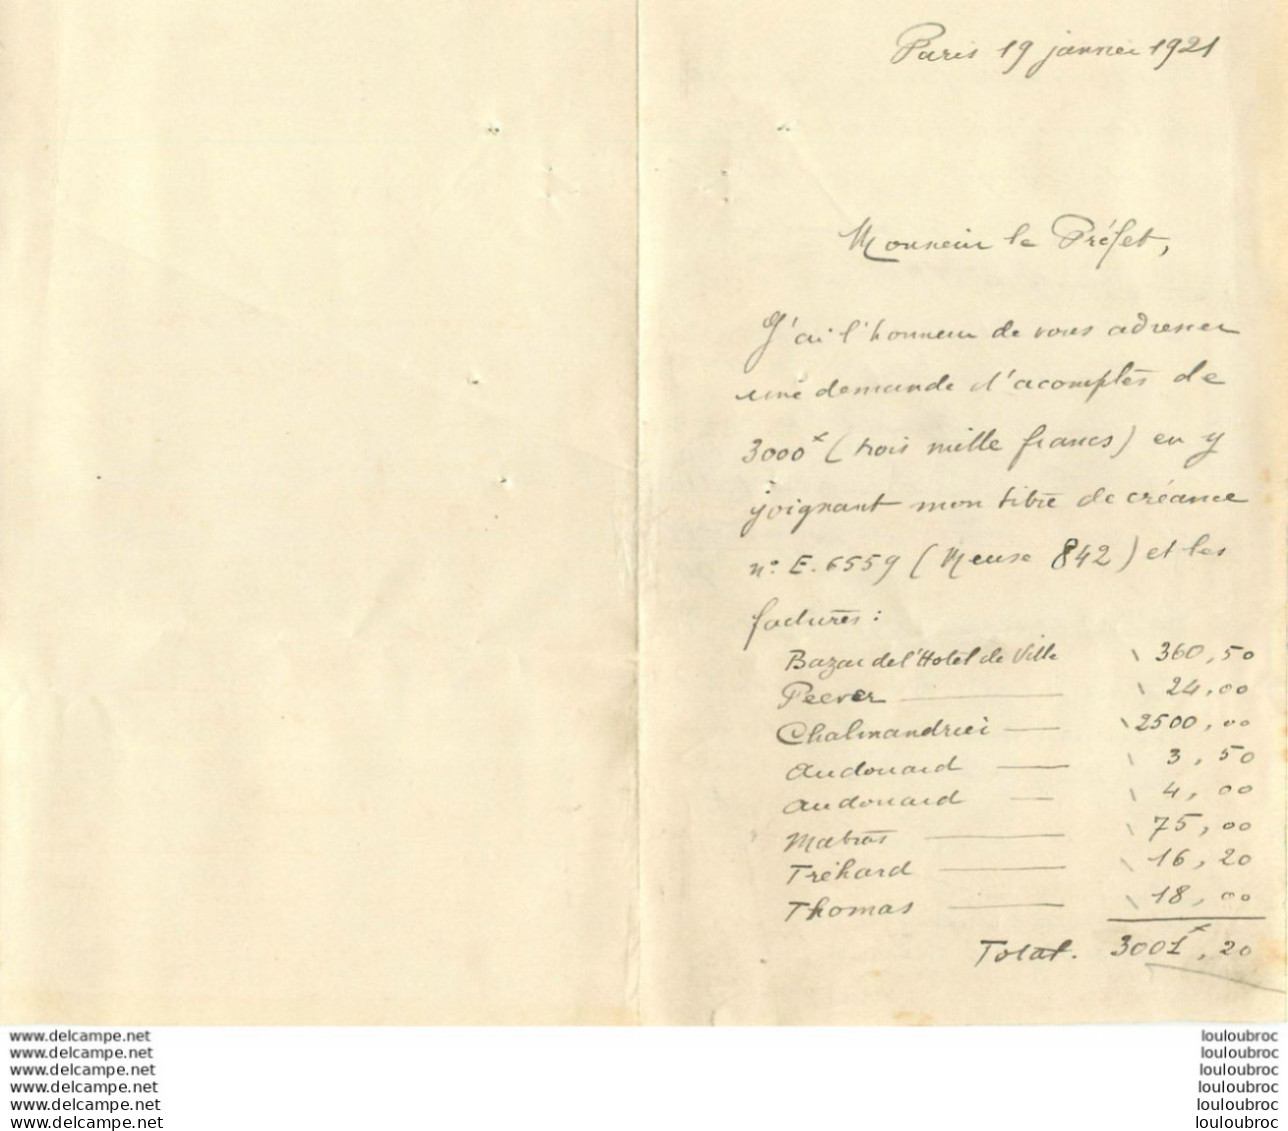 Paris 19 janvier 1921
Monsieur le Préfet,
J'ai l'honneur de vous adresser
une demande d'acomptes de
3000 f (trois mille francs) en y
joignant mon titre de créance
n° E. 6559 (Meuse 842) et les
factures :
Bazar de l'Hotel de Ville \ 360,50
Peever — \ 24,00
Chalmandrier — \ 2500,00
Audouard — \ 3,50
Audouard — \ 4,00
Matras — \ 75,00
Tréhard — \ 16,20
Thomas — \ 18,00
Total. 3001 f,20
www.delcampe.net louloubroc
www.delcampe.net louloubroc
www.delcampe.net louloubroc
www.delcampe.net louloubroc
www.delcampe.net louloubroc
www.delcampe.net louloubroc